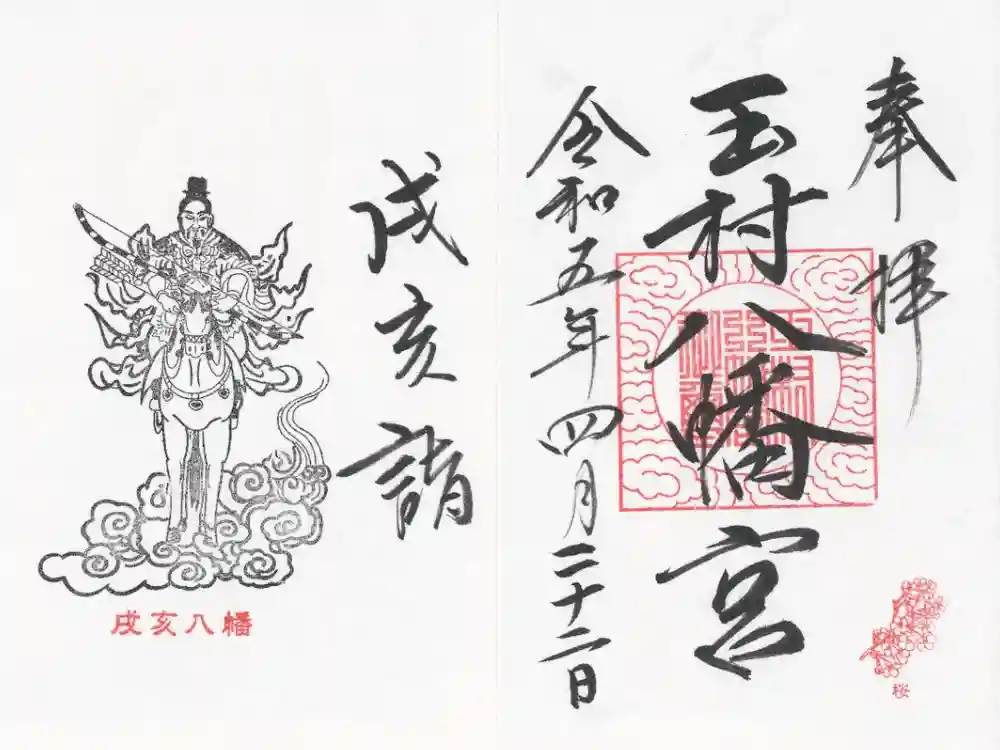 奉拝
玉村八幡宮
令和五年四月二十二日
桜
戌亥詣
戌亥八幡